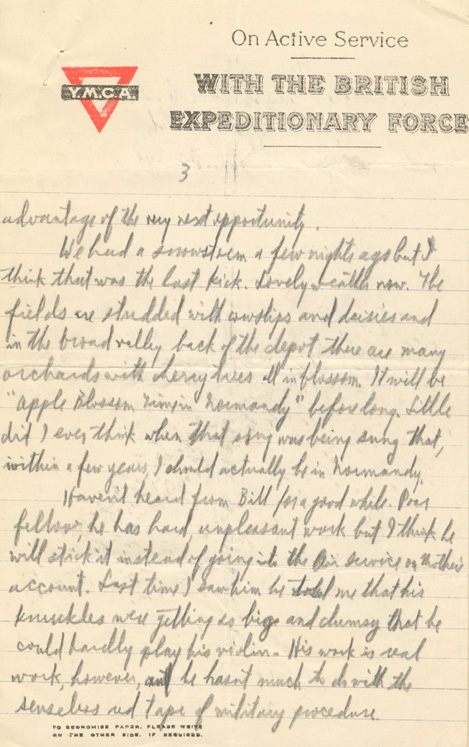 On Active Service
WITH THE BRITISH
EXPEDITIONARY FORCE
Y.M.C.A.
3
advantage of the very next opportunity.
We had a snowstorm a few nights ago but I
think that was the last kick. Lovely weather now. The
fields are studded with cowslips and daisies and
in the broad valley back of the depot there are many
orchards with cherry trees all in blossom. It will be
"Apple Blossom Time in Normandy" before long. Little
did I ever think when that song was being sung that,
within a few years, I should actually be in Normandy.
Haven't heard from Bill for a good while. Poor
fellow, he has hard, unpleasant work but I think he
will stick it instead of going into the Air service on Mother's
account. Last time I saw him he told me that his
knuckles were getting so big and clumsy that he
could hardly play his violin. His work is real
work, however, and he hasn't much to do with the
senseless red tape of military procedure.
TO ECONOMISE PAPER, PLEASE WRITE
ON THE OTHER SIDE, IF REQUIRED.